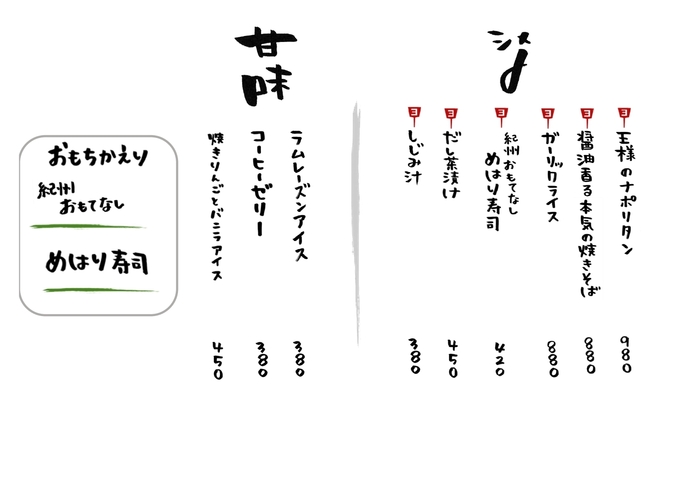 シメ
ヨ 王様のナポリタン 980
ヨ 醤油香る本気の焼きそば 880
ヨ ガーリックライス 880
ヨ 紀州おもてなし
めはり寿司 420
ヨ だし茶漬け 450
ヨ しじみ汁 380
甘味
ラムレーズンアイス 380
コーヒーゼリー 380
焼きりんごとバニラアイス 450
おもちかえり
紀州
おもてなし
めはり寿司